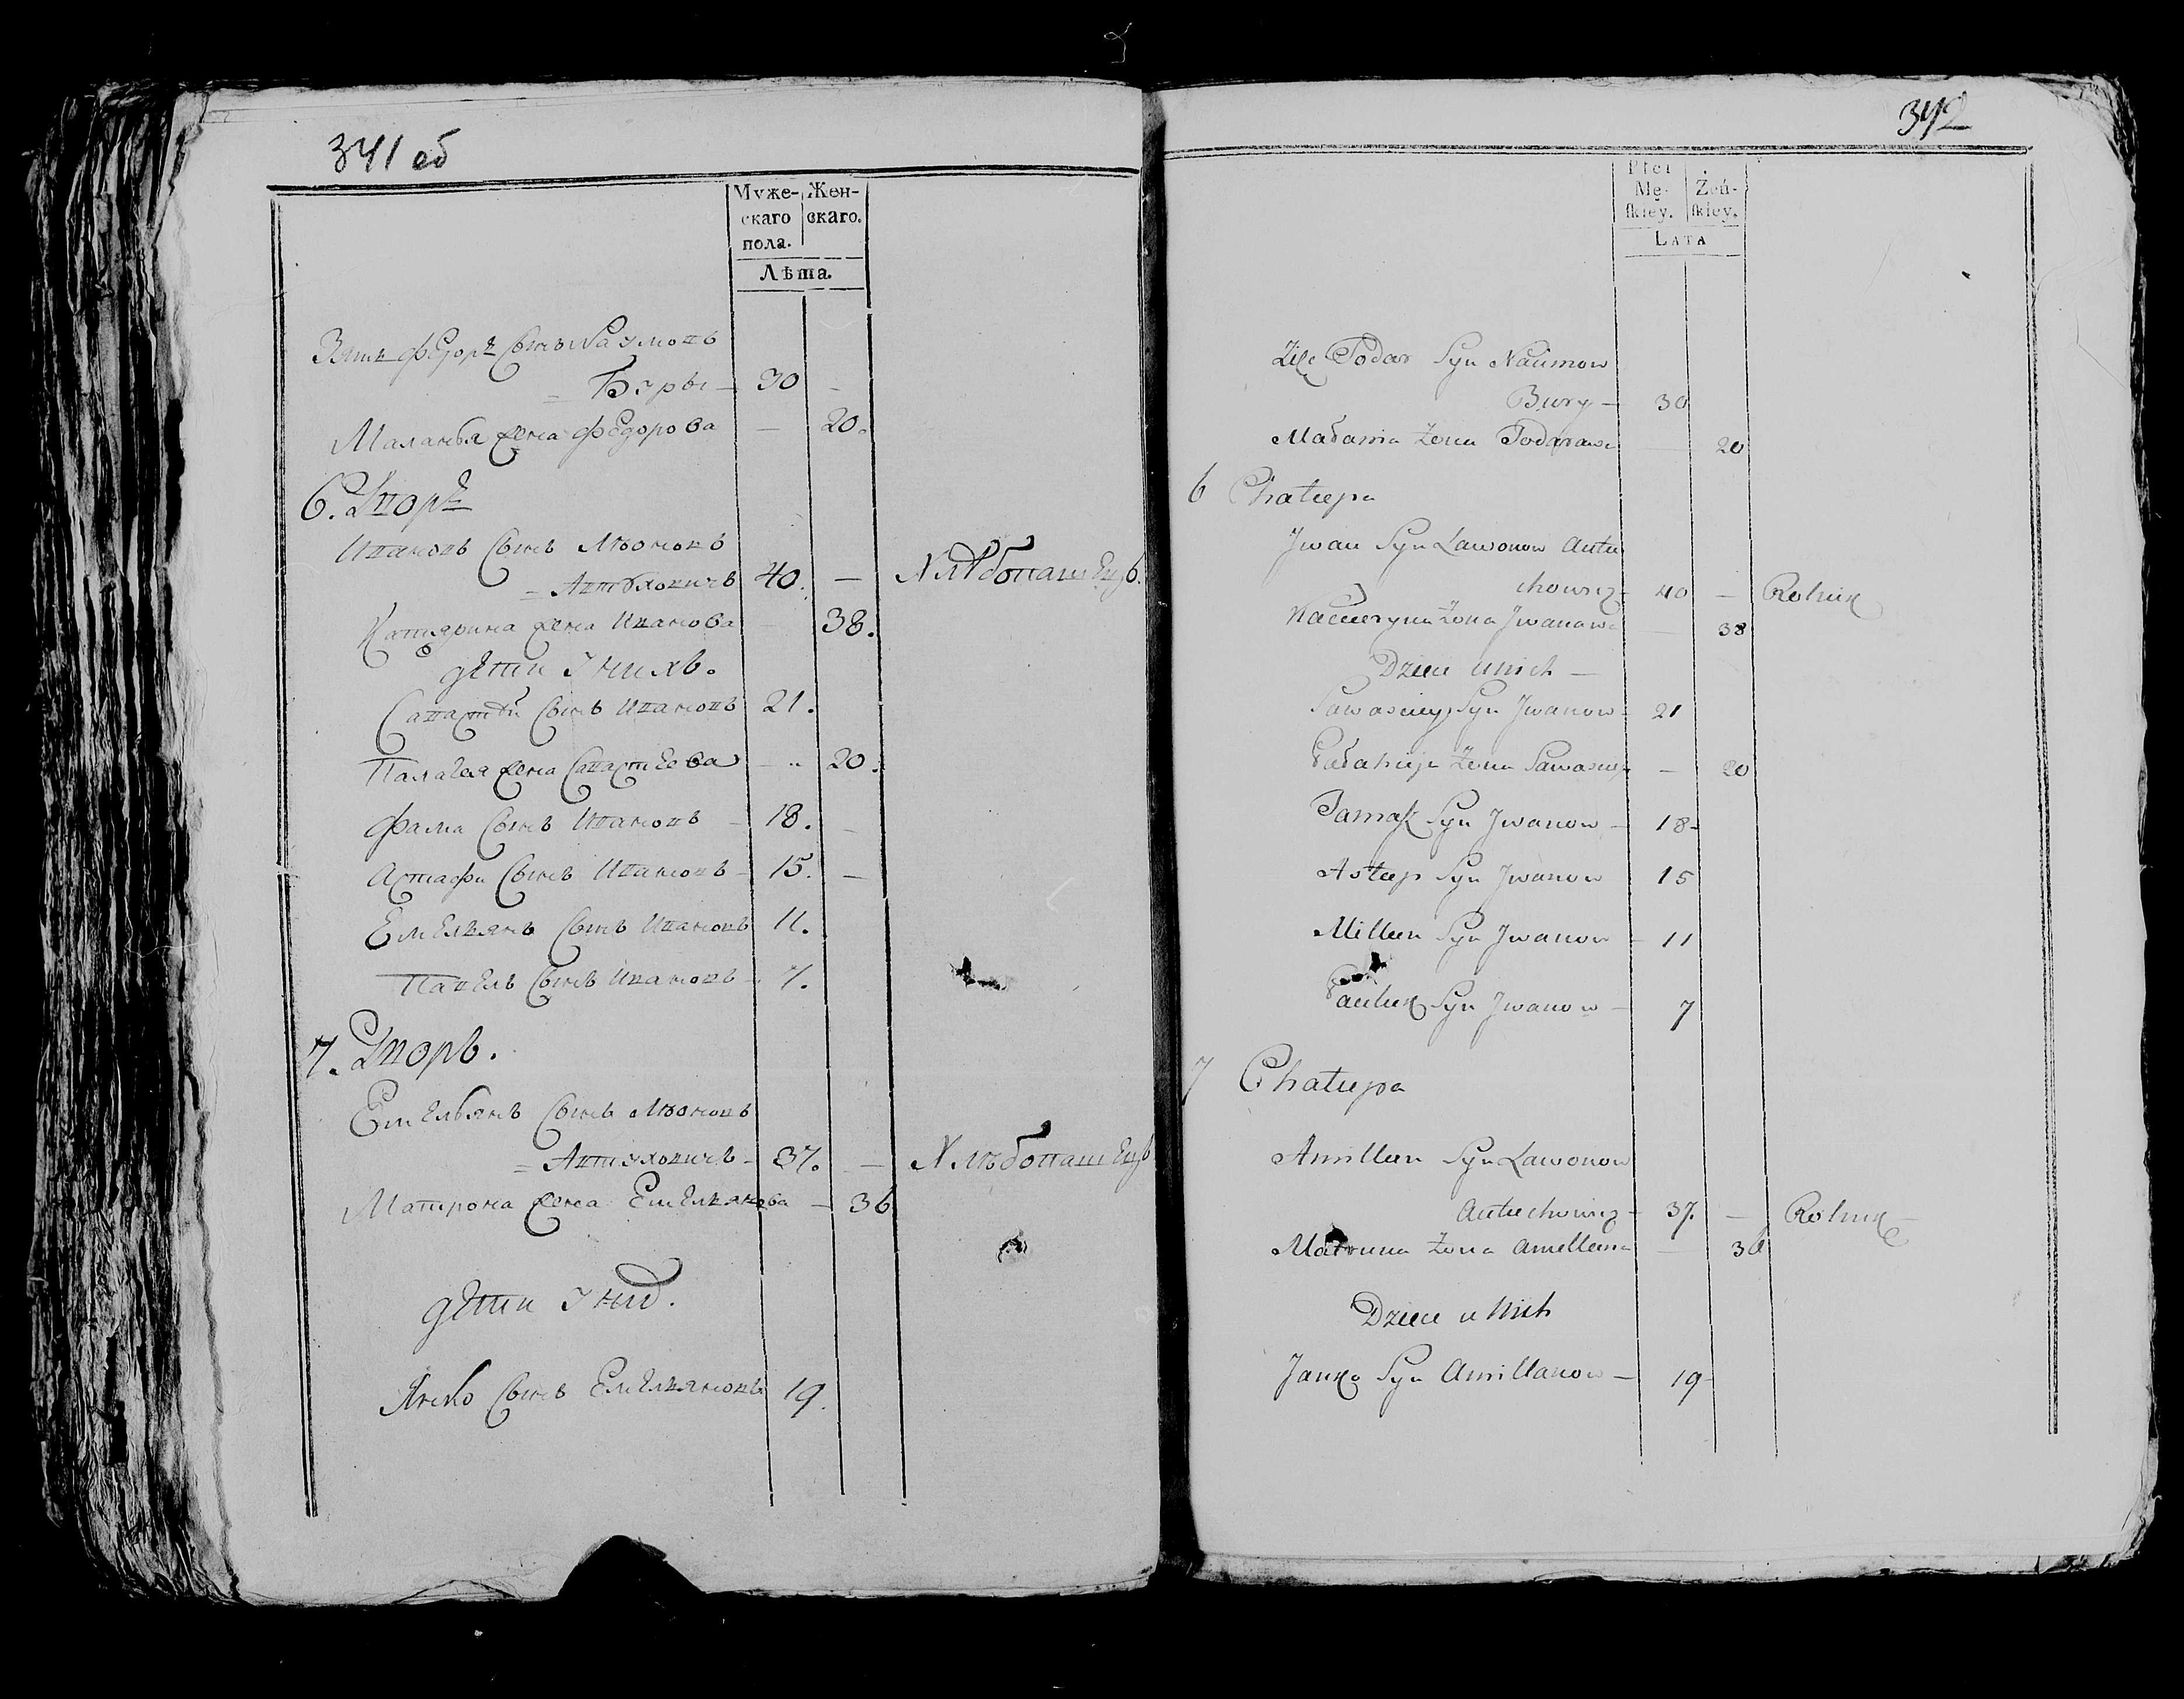 341 об
Муже-
скаго
пола.
Жен-
скаго.
Лѣта.
Зять Федоръ Сынъ Наумовъ
= Буры — 30 —
Маланья жена Федорова — 20.
6. Дворъ
Ивановъ Сынъ Лявоновъ
= Антуховичъ 40. — Хлѣбопашецъ.
Катярина жена Иванова — 38.
дети у нихъ.
Савастѣй Сынъ Ивановъ 21.
Палагея жена Савастѣева — 20.
Фама Сынъ Ивановъ — 18. —
Астафи Сынъ Ивановъ — 15. —
Емельянъ Сынъ Ивановъ 11.
Павелъ Сынъ Ивановъ — 7.
7. Дворъ.
Емельянъ Сынъ Лявоновъ
= Антуховичъ — 37. — Хлѣбопашецъ
Матрона жена Емельянова — 36
дети у них.
Янко Сынъ Емельяновъ 19.
342
Płci
Mę-
ſkiey.
Żeń-
ſkiey.
LATA
Zięć Todar Syn Naumow
Bury — 30
Małania Żona Todarawa — 20
6 Chałupa
Jwan Syn Lawonow Antu
chowicz — 40 — Rolnik
Kacieryna Żona Jwanowa — 38
Dzieci u nich —
Sawasciey Syn Jwanow — 21
Pałahieja Żona Sawasciej — 20
Tamaſz Syn Jwanow — 18 —
Astap Syn Jwanow 15
Millan Syn Jwanow — 11
Pauluk Syn Jwanow — 7
7 Chałupa
Amillan Syn Lawonow
Antuchowicz — 37. — Rolnik
Matruna Żona Amellana — 36
Dzieci u Nich
Janko Syn Amillanow — 19 —